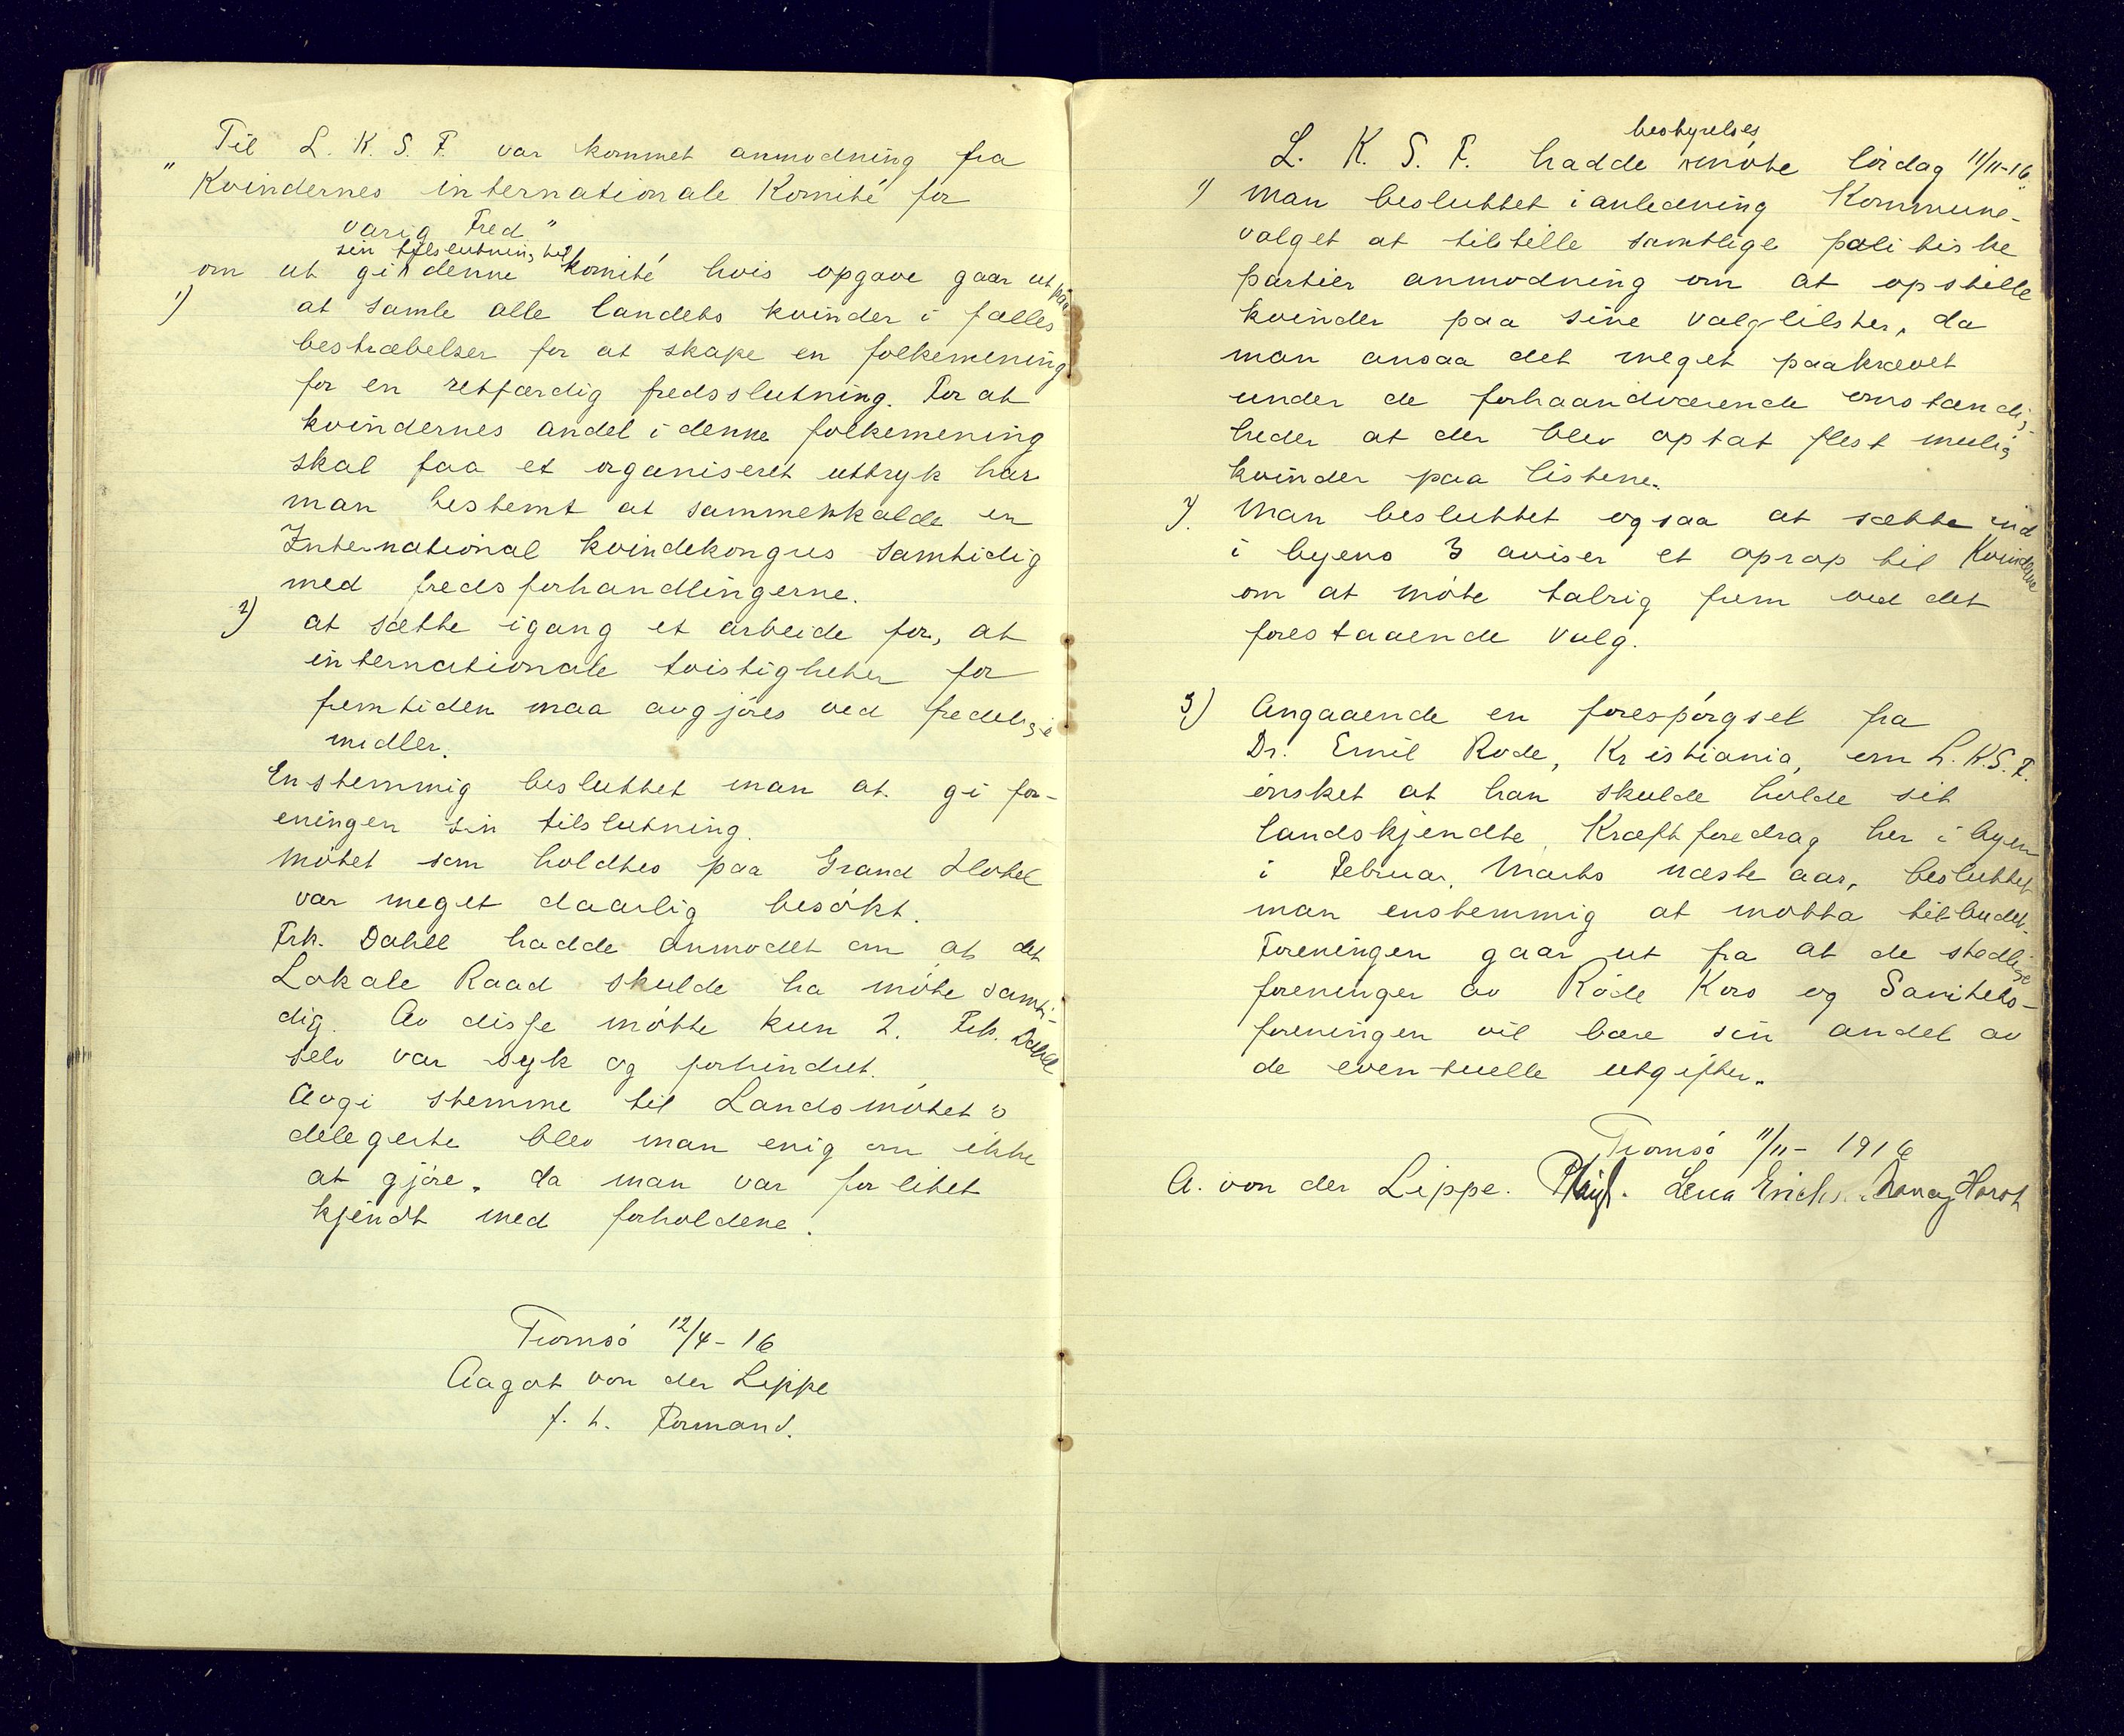 Til L. K. S. F. var kommet anmodning fra
" Kvindernes internationale Komité for
varig Fred "
sin tilslutning til
om at gi denne komité hvis opgave gaar ut paa
1) at samle alle landets kvinder i fælles
bestræbelser for at skape en folkemening
for en retfærdig fredsslutning. For at
kvindernes andel i denne folkemening
skal faa et organiseret uttryk har
man bestemt at sammenkalde en
International kvindekongres samtidig
med fredsforhandlingerne.
2) at sætte igang et arbeide for, at
internationale tvistigheter for
fremtiden maa avgjöres ved fredelige
midler.
Enstemmig besluttet man at gi for-
eningen sin tilslutning.
Mötet som holdtes paa Grand Hotel
var meget daarlig besökt.
Frk. Dahll hadde anmodet om at det
Lokale Raad skulde ha möte samti-
dig. Av disse mötte kun 2. Frk. Dahll
selv var syk og forhindret.
Avgi stemme til Landsmötet's
delegerte blev man enig om ikke
at gjöre, da man var for litet
kjendt med forholdene.
Tromsö 12/4-16
Aagot von der Lippe
f. t. Formand.
bestyrelses
L. K. S. F. hadde möte lördag 11/11-16.
1) Man besluttet i anledning Kommune-
valget at tilstille samtlige politiske
partier anmodning om at opstille
kvinder paa sine valglilster, da
man ansaa det meget paakrævet
under de forhaandværende omstændig-
heder at der blev optat flest mulig
kvinder paa listene.
2) Man besluttet ogsaa at sætte ind
i byens 3 aviser et oprop til Kvinderne
om at möte talrig frem ved det
forestaaende valg.
3) Angaaende en forespörgsel fra
Dr. Emil Rode, Kristiania, om L.K.S.F.
önsket at han skulde holde sit
landskjendte Kræftforedrag her i byen
i Februar, Marts næste aar, besluttet
man enstemmig at motta tilbudet.
Foreningen gaar ut fra at de stedlige
foreninger av Röde Kors og Sanitets-
foreningen vil bære sin andel av
de eventuelle utgifter.
Tromsö 11/11-1916
A. von der Lippe. Lena Erichs. Horst